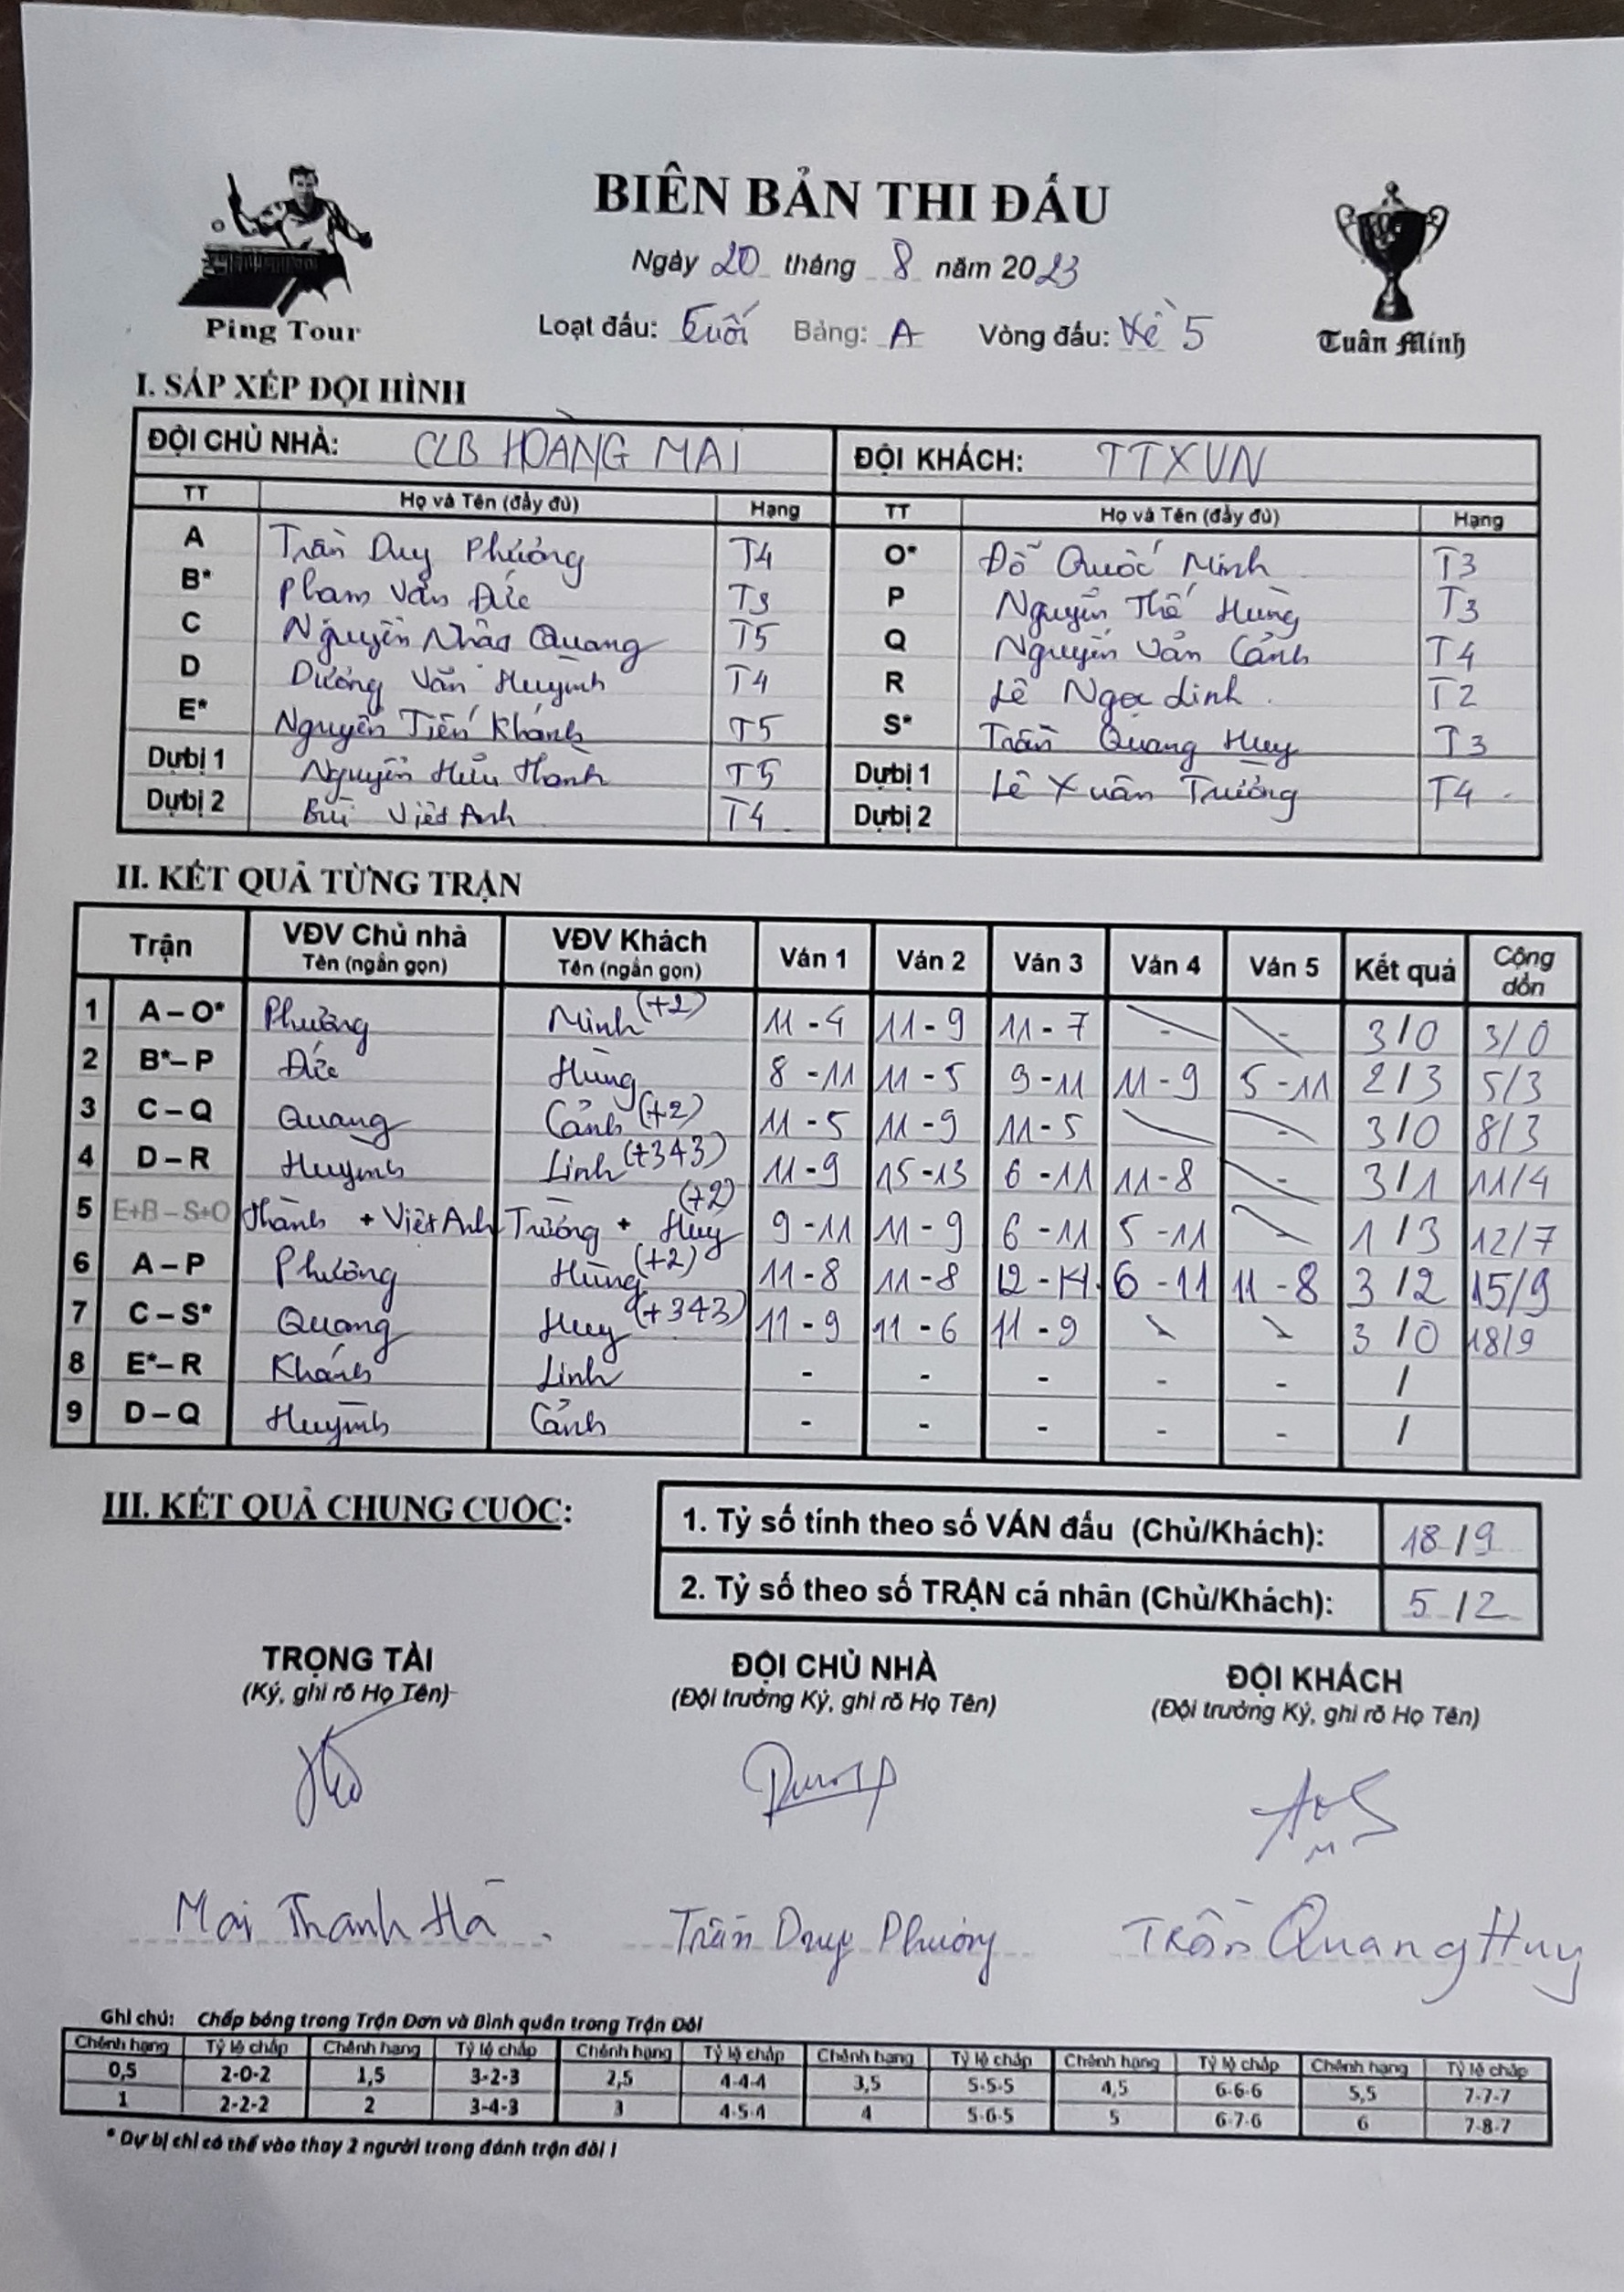 BIÊN BẢN THI ĐẤU
Ngày 20 tháng 8 năm 2023
Ping Tour
Loạt đấu: Cuối Bảng: A Vòng đấu: Kề 5
Tuân Minh
I. SẮP XẾP ĐỘI HÌNH
ĐỘI CHỦ NHÀ: CLB HOÀNG MAI ĐỘI KHÁCH: TTXVN
TT Họ và Tên (đầy đủ) Hạng TT Họ và Tên (đầy đủ) Hạng
A Trần Duy Phương T4 O* Đỗ Quốc Minh T3
B* Phạm Văn Đức T3 P Nguyễn Thế Hùng T3
C Nguyễn Nhão Quang T5 Q Nguyễn Văn Cảnh T4
D Dương Văn Huỳnh T4 R Lê Ngọc Linh T2
E* Nguyễn Tiến Khánh T5 S* Trần Quang Huy T3
Dự bị 1 Nguyễn Hữu Thành T5 Dự bị 1 Lê Xuân Trường T4
Dự bị 2 Bùi Việt Anh T4 Dự bị 2
II. KẾT QUẢ TỪNG TRẬN
Trận VĐV Chủ nhà Tên (ngắn gọn) VĐV Khách Tên (ngắn gọn) Ván 1 Ván 2 Ván 3 Ván 4 Ván 5 Kết quả Cộng dồn
1 A – O* Phương Minh (+2) 11 - 4 11 - 9 11 - 7 - - 3 / 0 3/0
2 B* – P Đức Hùng 8 - 11 11 - 5 9 - 11 11 - 9 5 - 11 2 / 3 5/3
3 C – Q Quang Cảnh (+2) 11 - 5 11 - 9 11 - 5 - - 3 / 0 8/3
4 D – R Huỳnh Linh (+343) 11 - 9 15 - 13 6 - 11 11 - 8 - 3 / 1 11/4
5 E+B – S+O Thành + Việt Anh Trường + Huy (+2) 9 - 11 11 - 9 6 - 11 5 - 11 - 1 / 3 12/7
6 A – P Phương Hùng (+2) 11 - 8 11 - 8 12 - 14 6 - 11 11 - 8 3 / 2 15/9
7 C – S* Quang Huy (+343) 11 - 9 11 - 6 11 - 9 - - 3 / 0 18/9
8 E* – R Khánh Linh - - - - - /
9 D – Q Huỳnh Cảnh - - - - - /
III. KẾT QUẢ CHUNG CUỘC:
1. Tỷ số tính theo số VÁN đấu (Chủ/Khách): 18 / 9
2. Tỷ số theo số TRẬN cá nhân (Chủ/Khách): 5 / 2
TRỌNG TÀI ĐỘI CHỦ NHÀ ĐỘI KHÁCH
(Ký, ghi rõ Họ Tên) (Đội trưởng Ký, ghi rõ Họ Tên) (Đội trưởng Ký, ghi rõ Họ Tên)
Mai Thanh Hà Trần Duy Phương Trần Quang Huy
Ghi chú: Chấp bóng trong Trận Đơn và Bình quân trong Trận Đôi
Chênh hạng Tỷ lệ chấp Chênh hạng Tỷ lệ chấp Chênh hạng Tỷ lệ chấp Chênh hạng Tỷ lệ chấp Chênh hạng Tỷ lệ chấp Chênh hạng Tỷ lệ chấp
0,5 2-0-2 1,5 3-2-3 2,5 4-4-4 3,5 5-5-5 4,5 6-6-6 5,5 7-7-7
1 2-2-2 2 3-4-3 3 4-5-4 4 5-6-5 5 6-7-6 6 7-8-7
* Dự bị chỉ có thể vào thay 2 người trong đánh trận đôi !